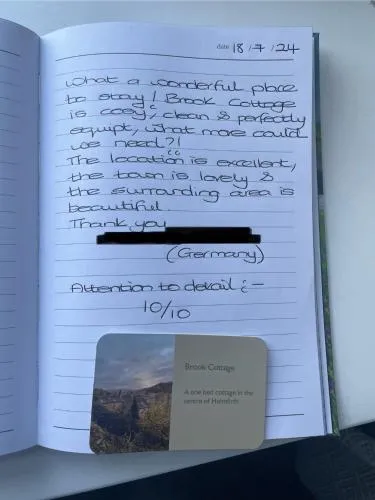 date 18/7/24
What a wonderful place
to stay! Brook Cottage
is cosy, clean & perfectly
equipt, what more could
we need?!
The location is excellent,
the town is lovely &
the surranding area is
beautiful.
Thank you
(Germany)
Attention to detail :-
10/10
Brook Cottage
A one bed cottage in the
centre of Holmfirth